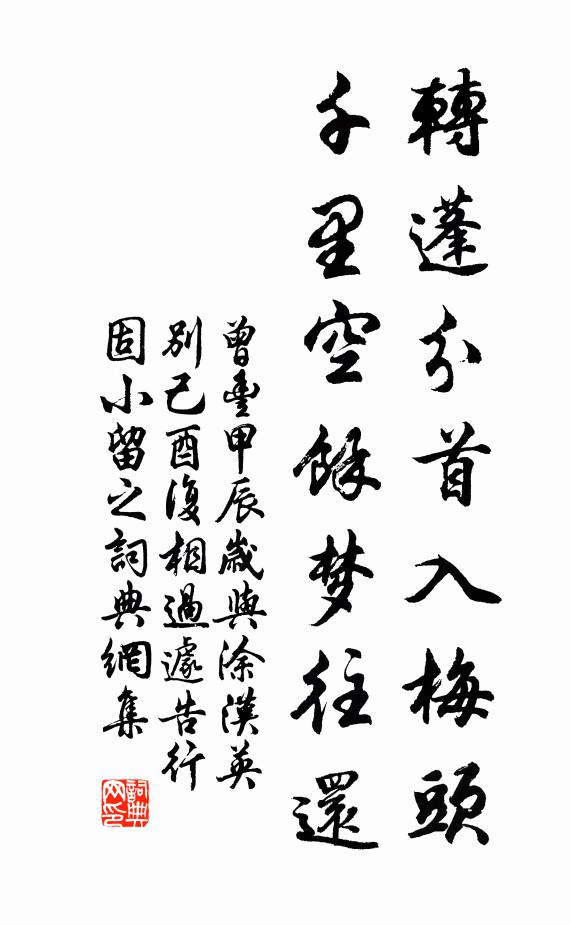 轉蓬分首入梅頭
千里空餘梦往還
曾豐甲辰歲與涂漢英
别己酉復相過遽告行
固小留之詞典網集
詞典
网印